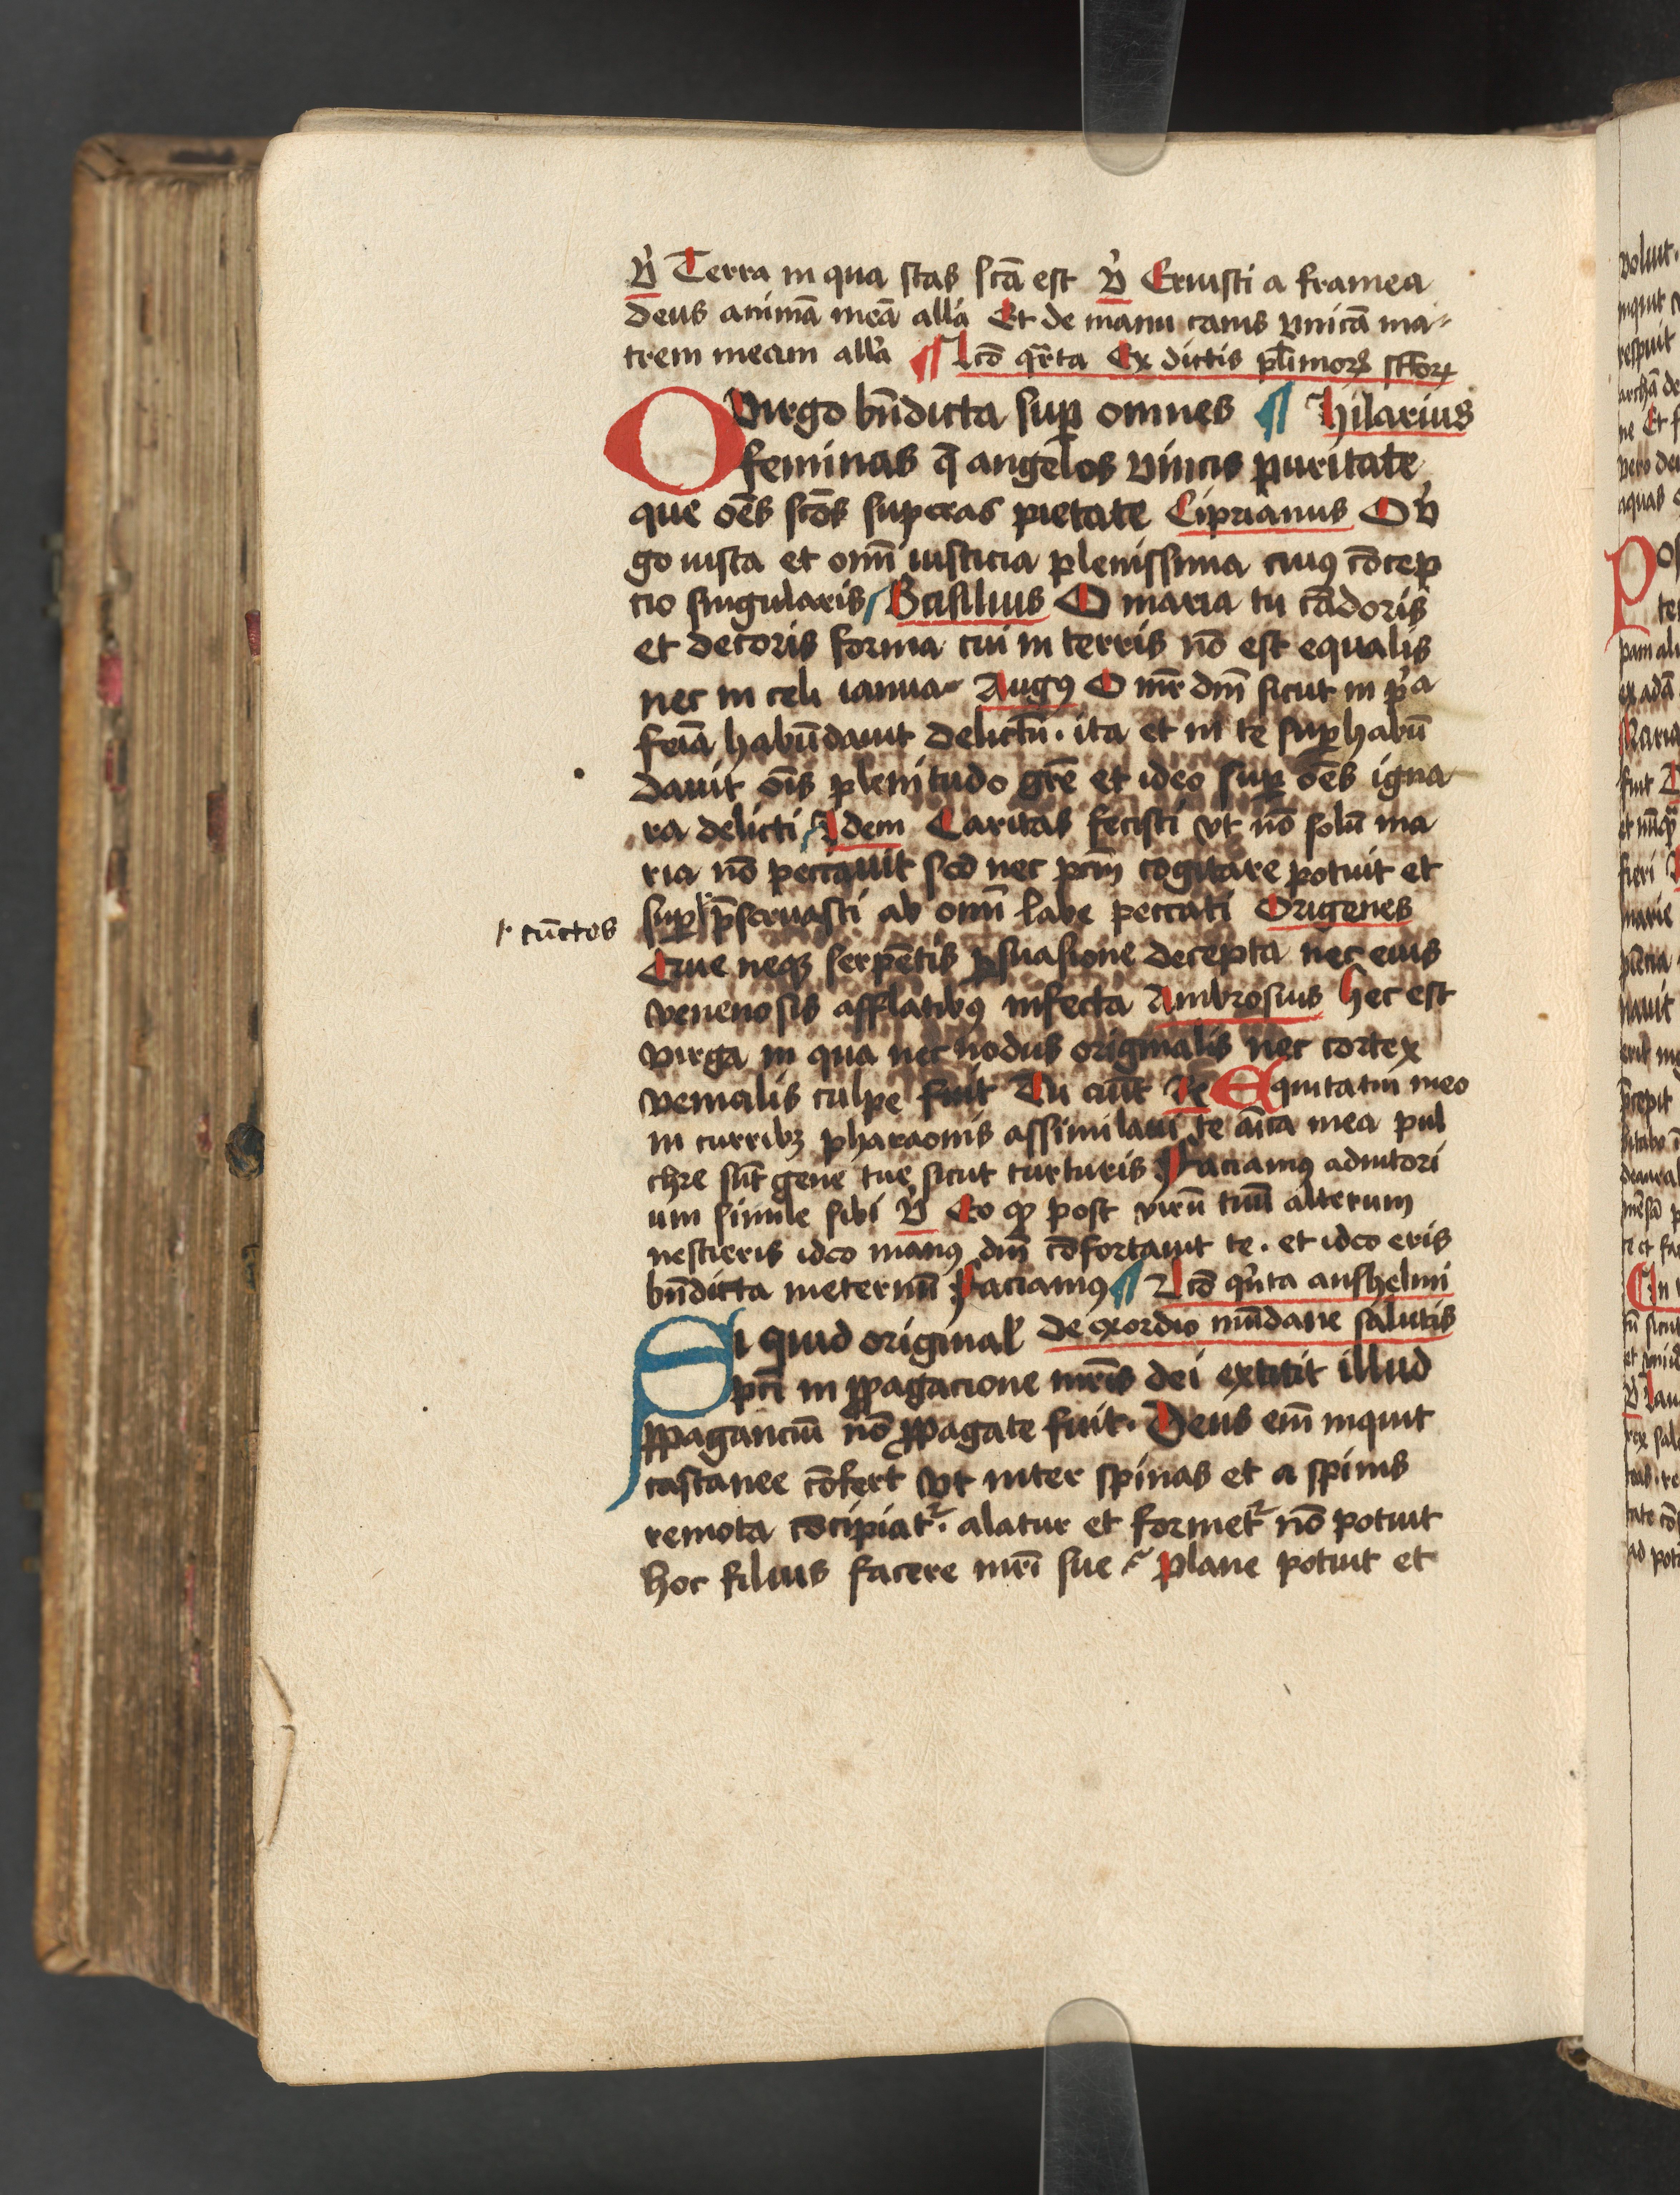 V̉ Terra in qua stas scā est V̉ Eruisti a framea
deus animā meā all'a Et de manu canis vnicā ma-
trem meam all'a ¶ Lcō qrta Ex dictis plimoꝝ sctoꝝ
O Virgo bn̄dicta suꝑ omnes ¶ hilarius
feminas q̄ angelos vincis puritate
que oēs scōs superas pietate Ciprianus O v̉
go iusta et omī iusticia plenissima cuiꝰ cōcep
cio singularis Basilius O maria tu cādoris
et decoris forma cui in terris nō est equalis
nec in celi ianua- Augꝰ O mr̄ dn̄i sicut in pͥa
feīa habūdauit delictū. ita et in te suꝑhabū
dauit oīs plenitudo grē et ideo suꝑ oēs igna
ra delicti Idem Caritas fecisti vt nō solū ma
ria nō peccauit sed nec pctm̄ cogitare potuit et
suꝑ p̄seruasti ab omī labe peccati Origenes
cūctos
Que neqꝫ serpētis ꝑsuasione decepta nec eius
venenosis afflatibꝰ infecta Ambrosius hec est
virga in qua nec nodus originalis nec cortex
venialis culpe fuit Tu aūt Re Equitatui meo
in curribꝫ pharaonis assimilaui te aīca mea pul
chre sūt gene tue sicut turturis Faciamꝰ adiutori
um simile sibi V̉ Eo ꝙ post virū tuū alterum
nescieris ideo manꝰ dn̄i cōfortauit te. et ideo eris
bn̄dicta ineternū Faciamꝰ ¶ Lcō qͥnta anshelmi
Si quid original' de exordio mūdane salutis
pcti in ꝓpagacione mr̄is dei extitit illud
ꝓpaganciū nō ꝓpagate fuit. Deus em̄ inquit
castanee cōfert vt inter spinas et a spinis
remota cōcipiat᷑. alatur et formet᷑ nō potuit
hoc filius facere mr̄i sue? Plane potuit et